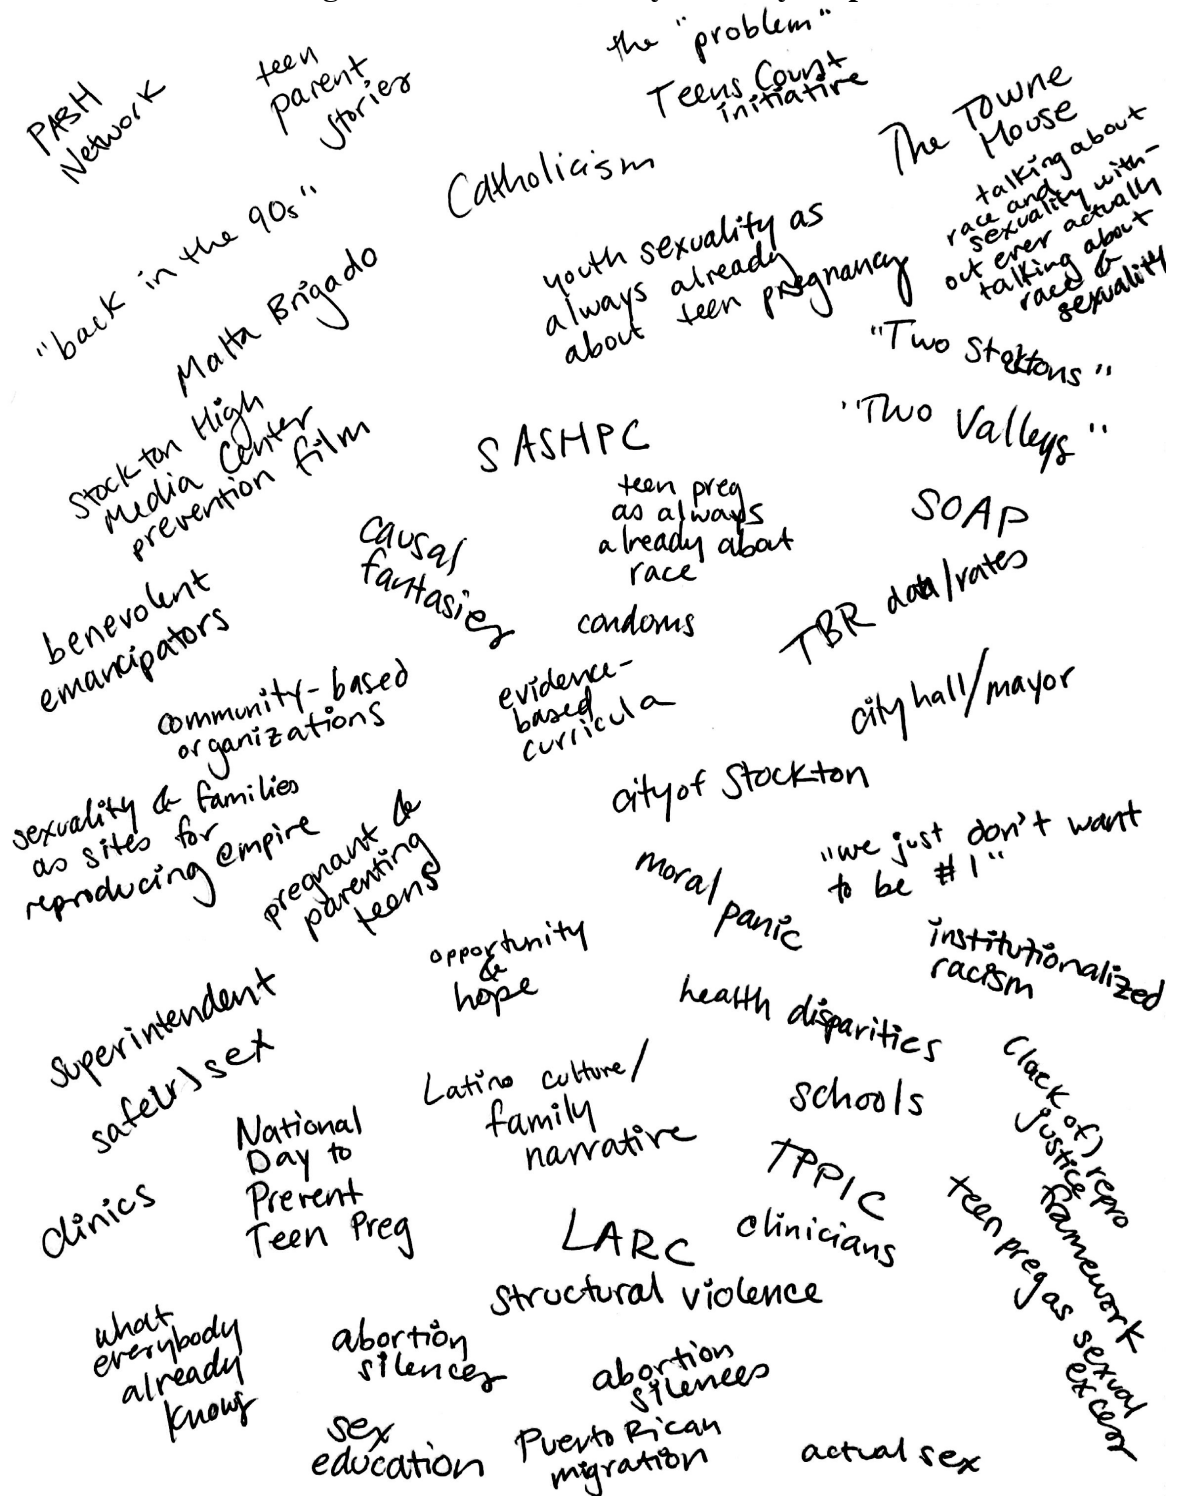 the "problem"
teen
parent
stories
PASH
Network
Teens Count
initiative
The Towne
House
Catholicism
talking about
race and
sexuality with-
out ever actually
talking about
race &
sexuality
"back in the 90s"
youth sexuality as
always already
about teen pregnancy
Malta Brigado
"Two Stoktons"
"Two Valleys"
Stockton High
Media Center
prevention film
SASHPC
teen preg
as always
already about
race
SOAP
causal
fantasies
TBR data/rates
benevolent
emancipators
condoms
community-based
organizations
evidence-
based
curricula
city hall/mayor
city of Stockton
sexuality & families
as sites for
reproducing empire
pregnant &
parenting
teens
"we just don't want
to be #1"
moral
panic
opportunity
&
hope
institutionalized
racism
health disparities
superintendent
safe(r) sex
Latino culture/
family
narrative
schools
(lack of) repro
justice
framework
National
Day to
Prevent
Teen Preg
TPPIC
clinics
LARC
clinicians
teen preg as sexual
excess
structural violence
what
everybody
already
knows
abortion
silences
abortion
silences
sex
education
Puerto Rican
migration
actual sex